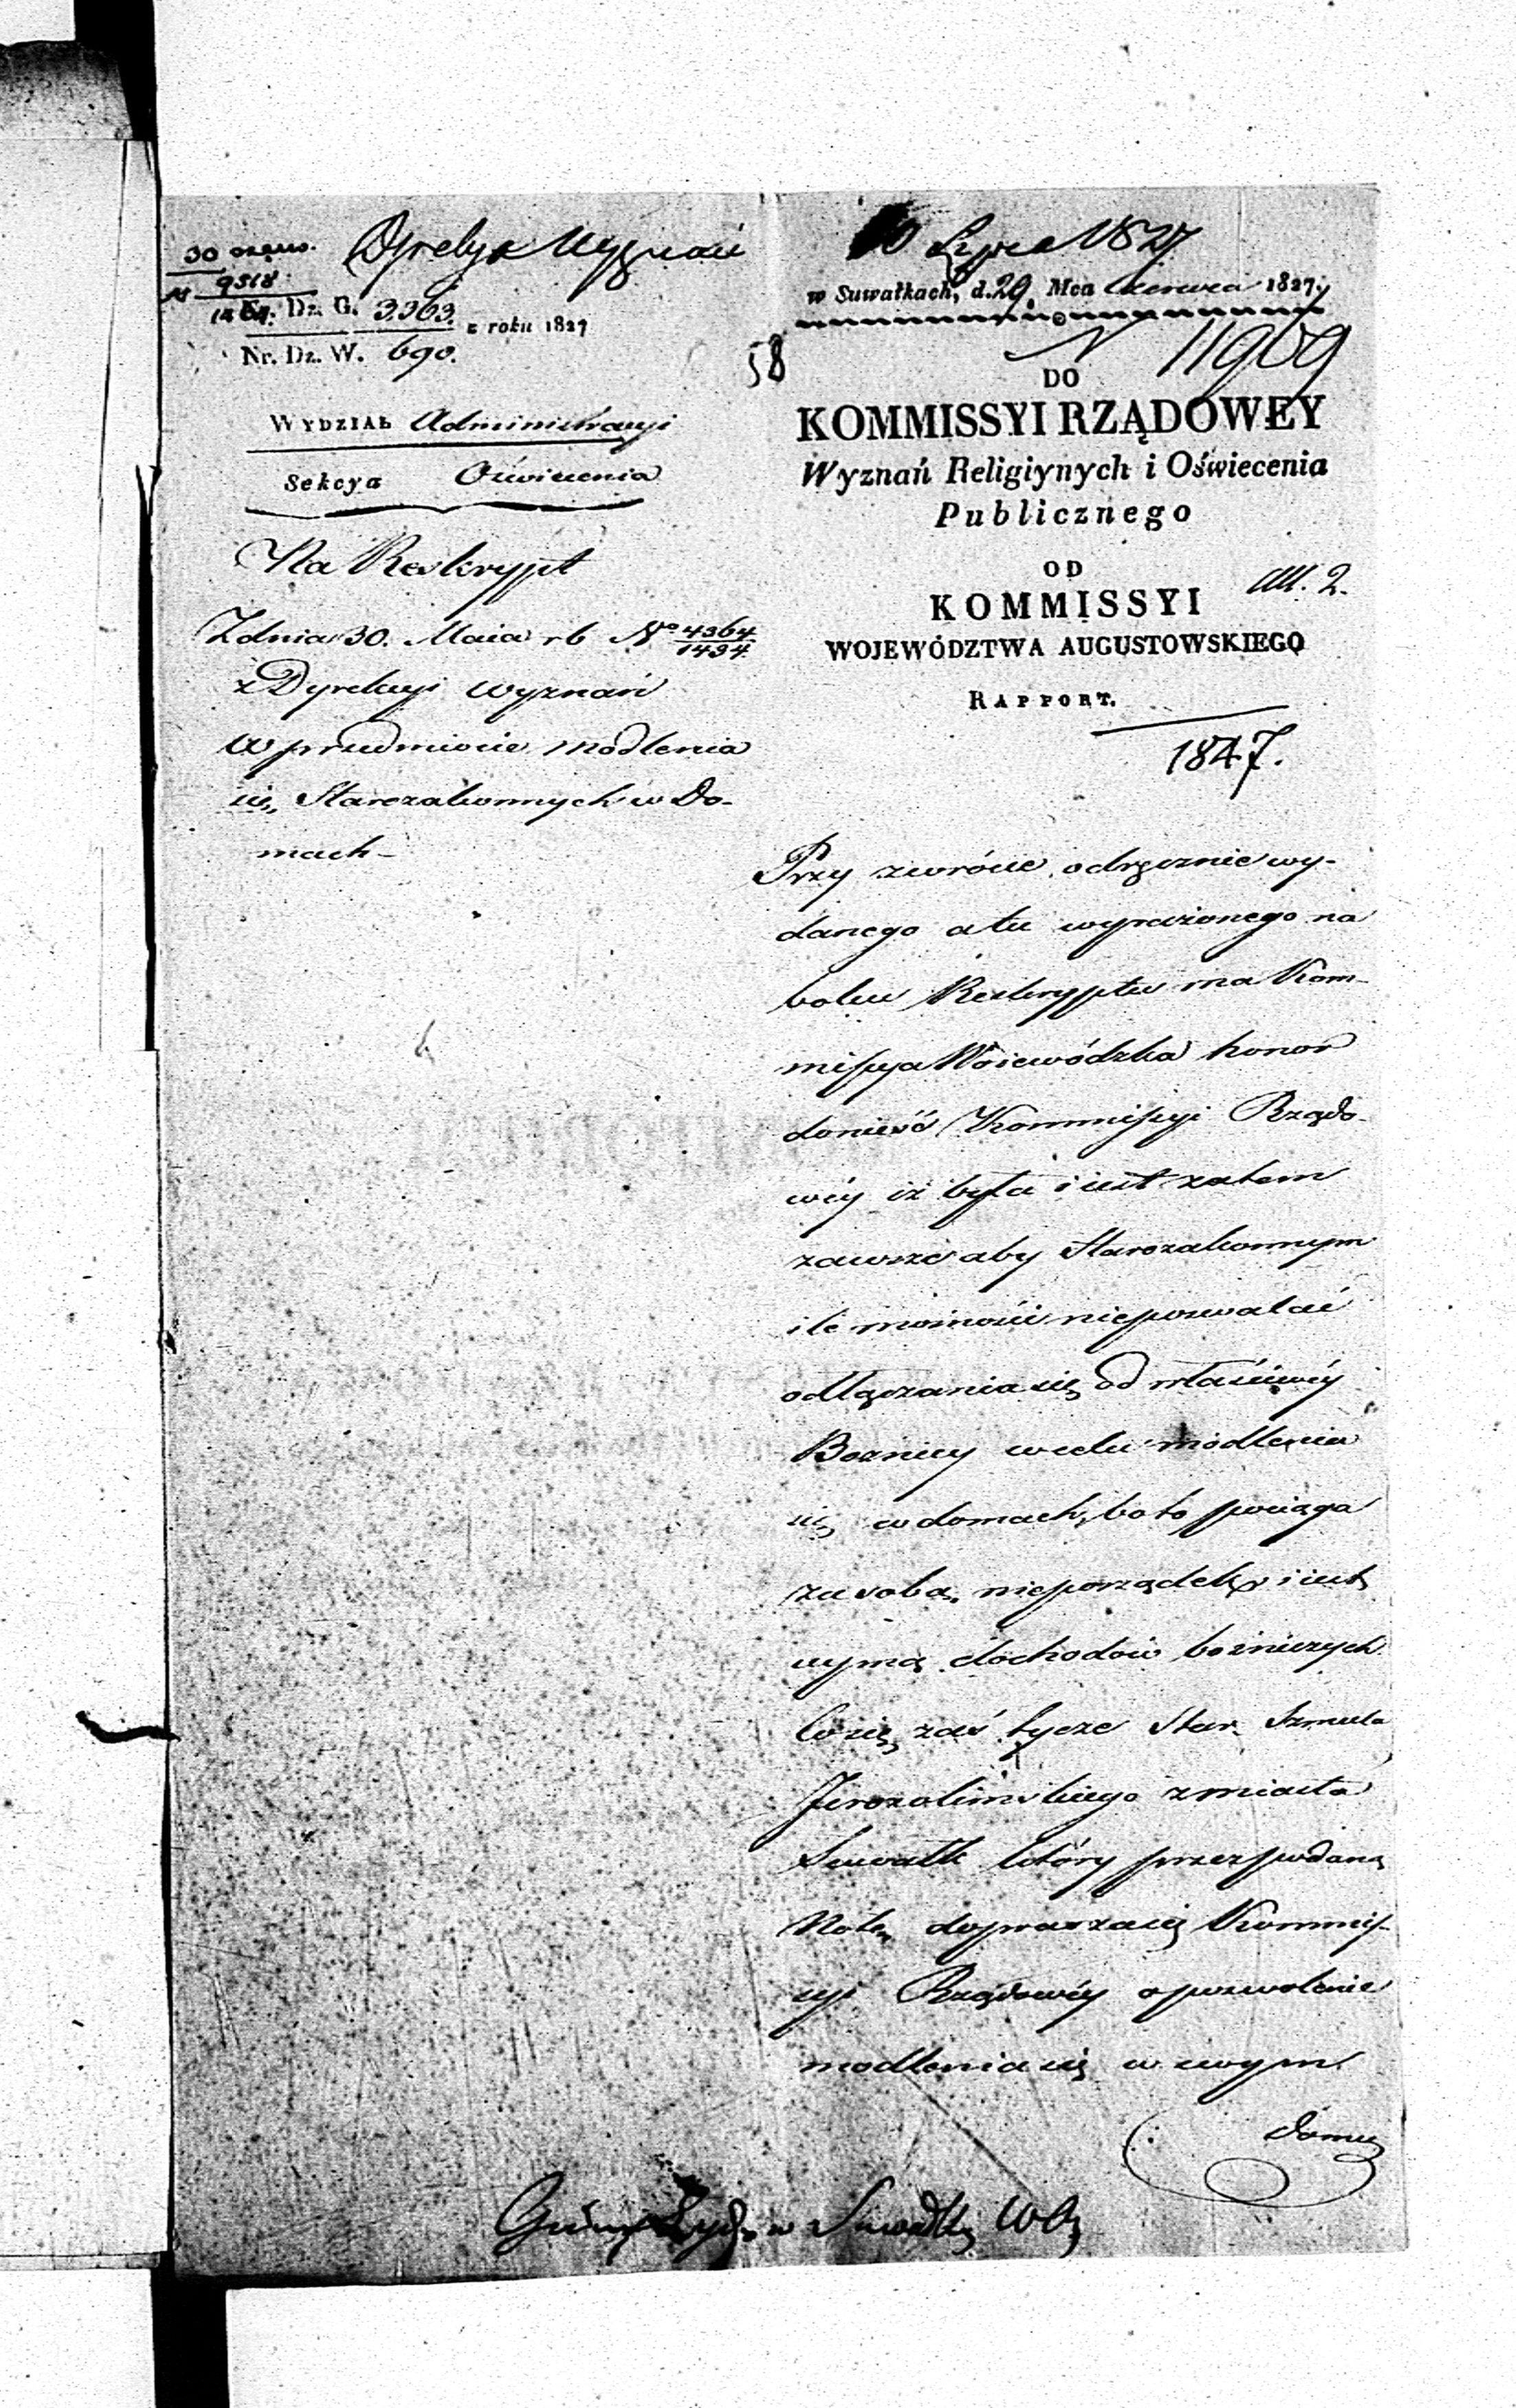 30 czerw.
9518
Dyrekcya Wyznań
Nr. Dz. G. 3363. z roku 1827
Nr. Dz. W. 690.
WYDZIAŁ Administracyi
Sekcya Oświecenia
Na Reskrypt
Z dnia 30. Maia r b No 4364/1434
z Dyrekcyi Wyznań
w przedmiocie modlenia
się Starozakonnych w Do-
mach -
10 Lipca 1827
w Suwałkach, d. 29. Mca Czerwca 1827.
N 11909
58
DO
KOMMISSYI RZĄDOWEY
Wyznań Religiynych i Oświecenia
Publicznego
OD
KOMMISSYI
WOJEWÓDZTWA AUGUSTOWSKIEGO
All. 2.
RAPPORT.
1847.
Przy zwrócie odręcznie wy-
danego a tu wyrażonego na
boku Reskryptu ma Kom-
missya Woiewódzka honor
donieść Kommissyi Rządo-
wéy iż była i iest zatem
zawsze aby Starozakonnym
ile możności niepozwalać
odłączania się od właściwéy
Boznicy w celu modlenia
się w domach, bo to pociąga
za sobą nieporządek i iest
uymą dochodów bożniczych
Co się zaś tycze Star. Szmula
Jerozolimskiego z miasta
Suwałk który przez podaną
Notę dopraszasię Kommis-
syi Rządowéy o pozwolenie
modlenia się w swym
domu
Gminy Żydów Suwałki W A